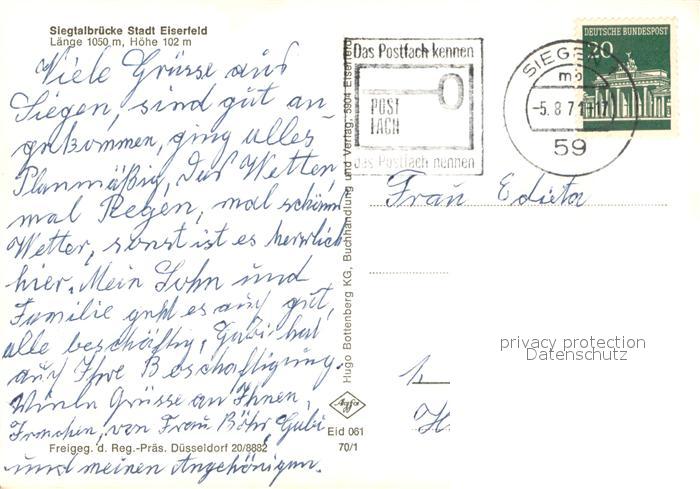 Siegtalbrücke Stadt Eiserfeld
Länge 1050 m, Höhe 102 m
Viele Grüsse aus
Siegen, sind gut an-
gekommen, ging alles
Planmäßig, Das Wetter,
mal Regen, mal schönes
Wetter, sonst ist es herrlich
hier. Mein Sohn und
Familie geht es auch gut,
alle beschäftig, Gabi hat
auch Ihre Beschäftigung.
Viele Grüsse an Ihnen,
von Frau Böhr, Gabi
und meinen Angehörigen.
Freigeg. d. Reg.-Präs. Düsseldorf 20/8882
Hugo Bottenberg KG, Buchhandlung und Verlag, 5904 Eiserfeld
Agfa
Eid 061
70/1
Das Postfach kennen
POST
FACH
das Postfach nennen
SIEGEN
mb
-5.8.71-17
59
DEUTSCHE BUNDESPOST
20
Frau Edieta
privacy protection
Datenschutz
H